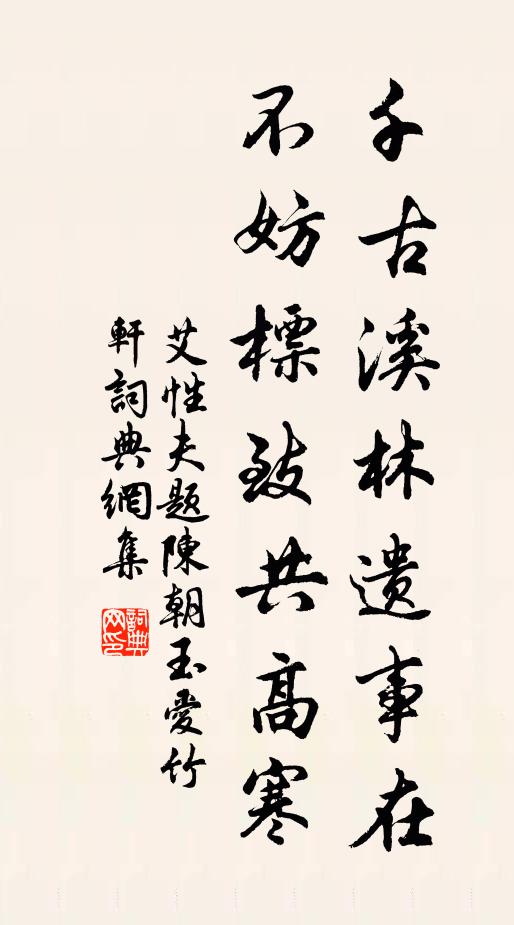 千古溪林遺事在
不妨標致共高寒
艾性夫題陳朝玉愛竹
軒詞典網集
詞典
网印